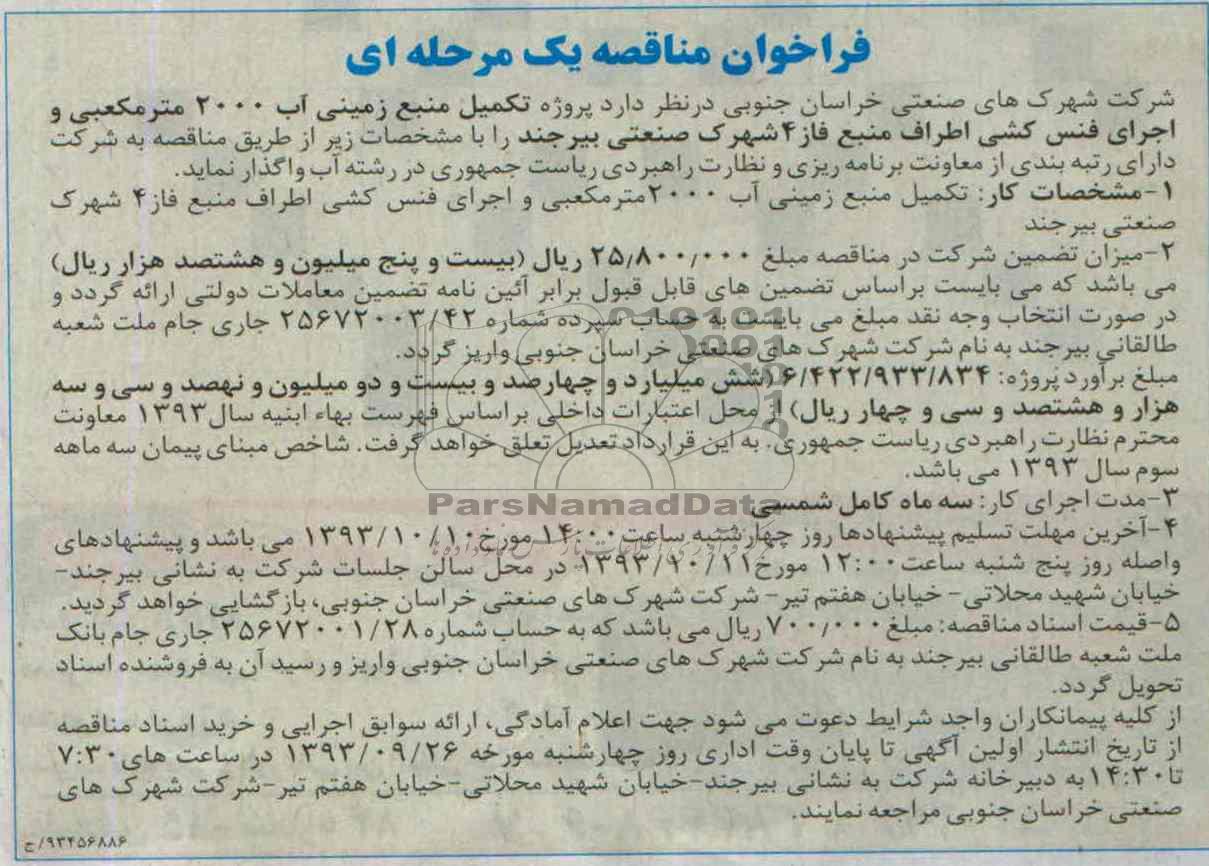 فراخوان مناقصه یک مرحله ای
شرکت شهرک های صنعتی خراسان جنوبی درنظر دارد پروژه تکمیل منبع زمینی آب ۲۰۰۰ مترمکعبی و
اجرای فنس کشی اطراف منبع فاز۴شهرک صنعتی بیرجند را با مشخصات زیر از طریق مناقصه به شرکت
دارای رتبه بندی از معاونت برنامه ریزی و نظارت راهبردی ریاست جمهوری در رشته آب واگذار نماید.
۱-مشخصات کار: تکمیل منبع زمینی آب ۲۰۰۰مترمکعبی و اجرای فنس کشی اطراف منبع فاز۴ شهرک
صنعتی بیرجند
۲-میزان تضمین شرکت در مناقصه مبلغ ۲۵٫۸۰۰٫۰۰۰ ریال (بیست و پنج میلیون و هشتصد هزار ریال)
می باشد که می بایست براساس تضمین های قابل قبول برابر آئین نامه تضمین معاملات دولتی ارائه گردد و
در صورت انتخاب وجه نقد مبلغ می بایست به حساب سپرده شماره ۲۵۶۷۲۰۰۳/۴۲ جاری جام ملت شعبه
طالقانی بیرجند به نام شرکت شهرک های صنعتی خراسان جنوبی واریز گردد.
مبلغ برآورد پروژه: ۶/۴۲۲/۹۳۳/۸۳۴ (شش میلیارد و چهارصد و بیست و دو میلیون و نهصد و سی و سه
هزار و هشتصد و سی و چهار ریال) از محل اعتبارات داخلی براساس فهرست بهاء ابنیه سال۱۳۹۳ معاونت
محترم نظارت راهبردی ریاست جمهوری. به این قرارداد تعدیل تعلق خواهد گرفت. شاخص مبنای پیمان سه ماهه
سوم سال ۱۳۹۳ می باشد.
ParsNamadData
۳-مدت اجرای کار: سه ماه کامل شمسی
۴-آخرین مهلت تسلیم پیشنهادها روز چهارشنبه ساعت۱۴:۰۰ مورخ۱۳۹۳/۱۰/۱۰ می باشد و پیشنهادهای
واصله روز پنج شنبه ساعت۱۲:۰۰ مورخ۱۳۹۳/۱۰/۱۱ در محل سالن جلسات شرکت به نشانی بیرجند-
خیابان شهید محلاتی- خیابان هفتم تیر- شرکت شهرک های صنعتی خراسان جنوبی، بازگشایی خواهد گردید.
۵-قیمت اسناد مناقصه: مبلغ۷۰۰٫۰۰۰ ریال می باشد که به حساب شماره ۲۵۶۷۲۰۰۱/۲۸ جاری جام بانک
ملت شعبه طالقانی بیرجند به نام شرکت شهرک های صنعتی خراسان جنوبی واریز و رسید آن به فروشنده اسناد
تحویل گردد.
از کلیه پیمانکاران واجد شرایط دعوت می شود جهت اعلام آمادگی، ارائه سوابق اجرایی و خرید اسناد مناقصه
از تاریخ انتشار اولین آگهی تا پایان وقت اداری روز چهارشنبه مورخه ۱۳۹۳/۰۹/۲۶ در ساعت های۷:۳۰
تا۱۴:۳۰به دبیرخانه شرکت به نشانی بیرجند-خیابان شهید محلاتی-خیابان هفتم تیر-شرکت شهرک های
صنعتی خراسان جنوبی مراجعه نمایند.
۹۳۴۵۶۸۸۶/ج